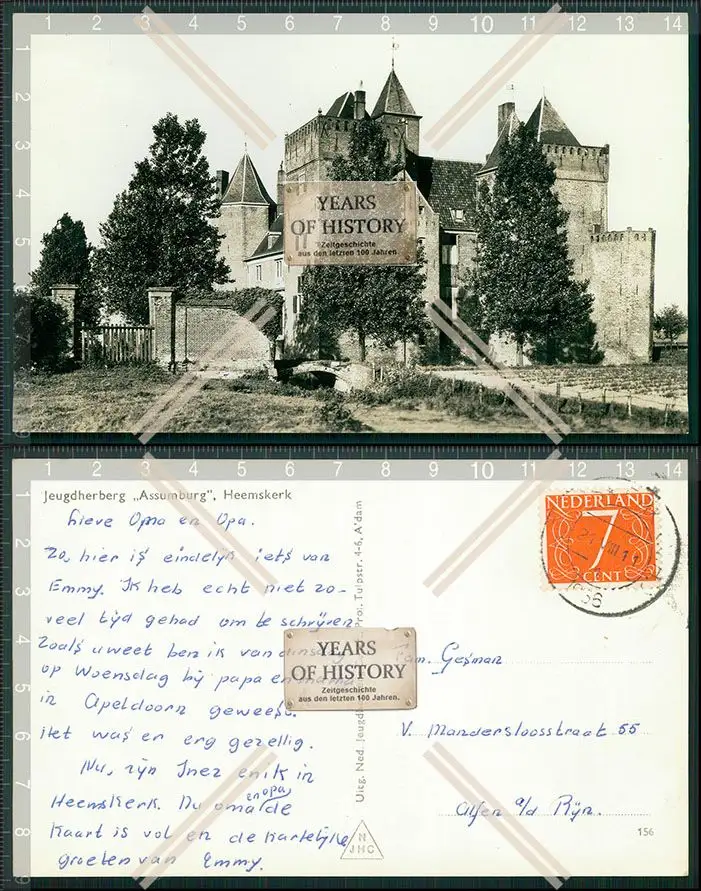 1 2 3 4 5 6 7 8 9 10 11 12 13 14
YEARS
OF HISTORY
Zeitgeschichte
aus den letzten 100 Jahren.
1 2 3 4 5 6 7 8 9 10 11 12 13 14
Jeugdherberg „Assumburg", Heemskerk
Lieve Oma en Opa.
Zo, hier is eindelijk iets van
Emmy. Ik heb echt niet zo-
veel tijd gehad om te schrijven.
Zoals u weet ben ik van
op Woensdag bij papa en mama
in Apeldoorn geweest.
Het was er erg gezellig.
Nu, zijn Inez en ik in
Heemskerk. Nu oma en opa de
kaart is vol en de hartelijke
groeten van Emmy.
YEARS
OF HISTORY
Zeitgeschichte
aus den letzten 100 Jahren.
Uitg. Ned. Prof. Tulpstr. 4-6, A'dam
N
JHC
NEDERLAND
7
CENT
Fam. Gesman
V. Mandersloosstraat 55
Alfen a/d Rijn.
156